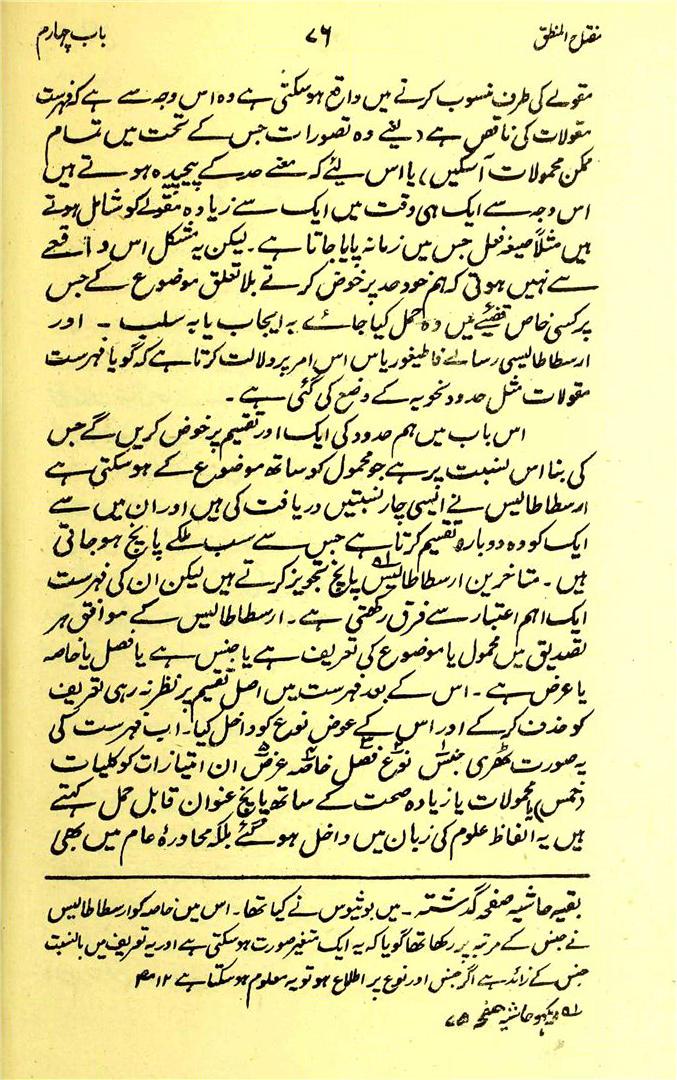 مفتاح المنطق ۷۶ باب چہارم
مقولے کی طرف منسوب کرنے میں واقع ہوسکتی ہے وہ اس وجہ سے ہے کہ فہرست
مقولات کی ناقص ہے (یعنے وہ تصورات جس کے تحت میں تمام
ممکن محمولات آسکیں) یا اس لیئے کہ معنے حد کے پیچیدہ ہوتے ہیں
اس وجہ سے ایک ہی وقت میں ایک سے زیادہ مقولے کو شامل ہوتے
ہیں مثلاً صیغہ فعل جس میں زمانہ پایا جاتا ہے۔ لیکن یہ مشکل اس واقعے
سے نہیں ہوتی کہ ہم خود حد پر خوض کرتے بلا تعلق موضوع کے جس
پر کسی خاص قضیئے میں وہ حمل کیا جائے بہ ایجاب یا بہ سلب ۔ اور
ارسطاطالیسی رسالے قاطیغوریاس اس امر پر دلالت کرتا ہے کہ گویا فہرست
مقولات مثل حدود نحویہ کے وضع کی گئی ہے ۔
اس باب میں ہم حدود کی ایک اور تقسیم پر خوض کریں گے جس
کی بنا اس نسبت پر ہے جو محمول کو ساتھ موضوع کے ہوسکتی ہے
ارسطاطالیس نے ایسی چار نسبتیں دریافت کی ہیں اور ان میں سے
ایک کو وہ دوبارہ تقسیم کرتا ہے جس سے سب ملکے پانچ ہوجاتی
ہیں ۔ متاخرین ارسطاطالیس ۵۱ پانچ تجویز کرتے ہیں لیکن ان کی فہرست
ایک اہم اعتبار سے فرق رکھتی ہے۔ ارسطاطالیس کے موافق ہر
تصدیق میں محمول یا موضوع کی تعریف ہے یا جنس ہے یا فصل یا خاصہ
یا عرض ہے ۔ اس کے بعد فہرست میں اصل تقسیم پر نظر نہ رہی تعریف
کو حذف کرکے اور اس کے عوض نوع کو داخل کیا۔ اب فہرست کی
یہ صورت ٹھری جنس۱ نوع۲ فصل۳ خاصہ۴ عرض۵ ان امتیازات کو کلیات
(خمس) یا محمولات یا زیادہ صحت کے ساتھ پانچ عنوان قابل حمل کہتے
ہیں یہ الفاظ علوم کی زبان میں داخل ہوگئے بلکہ محاورۂ عام میں بھی
بقیہ حاشیہ صفحہ گذشتہ ۔ میں بوثیوس نے کیا تھا۔ اس میں خاصہ کو ارسطاطالیس
نے جنس کے مرتبہ پر رکھا تھا گویا کہ یہ ایک متغیر صورت ہوسکتی ہے اور یہ تعریف میں بالنسبت
جنس کے زائد ہے اگر جنس اور نوع پر اطلاع ہو تو یہ معلوم ہوسکتا ہے ۱۲
۵۱ دیکھو حاشیہ صفحہ ۷۵